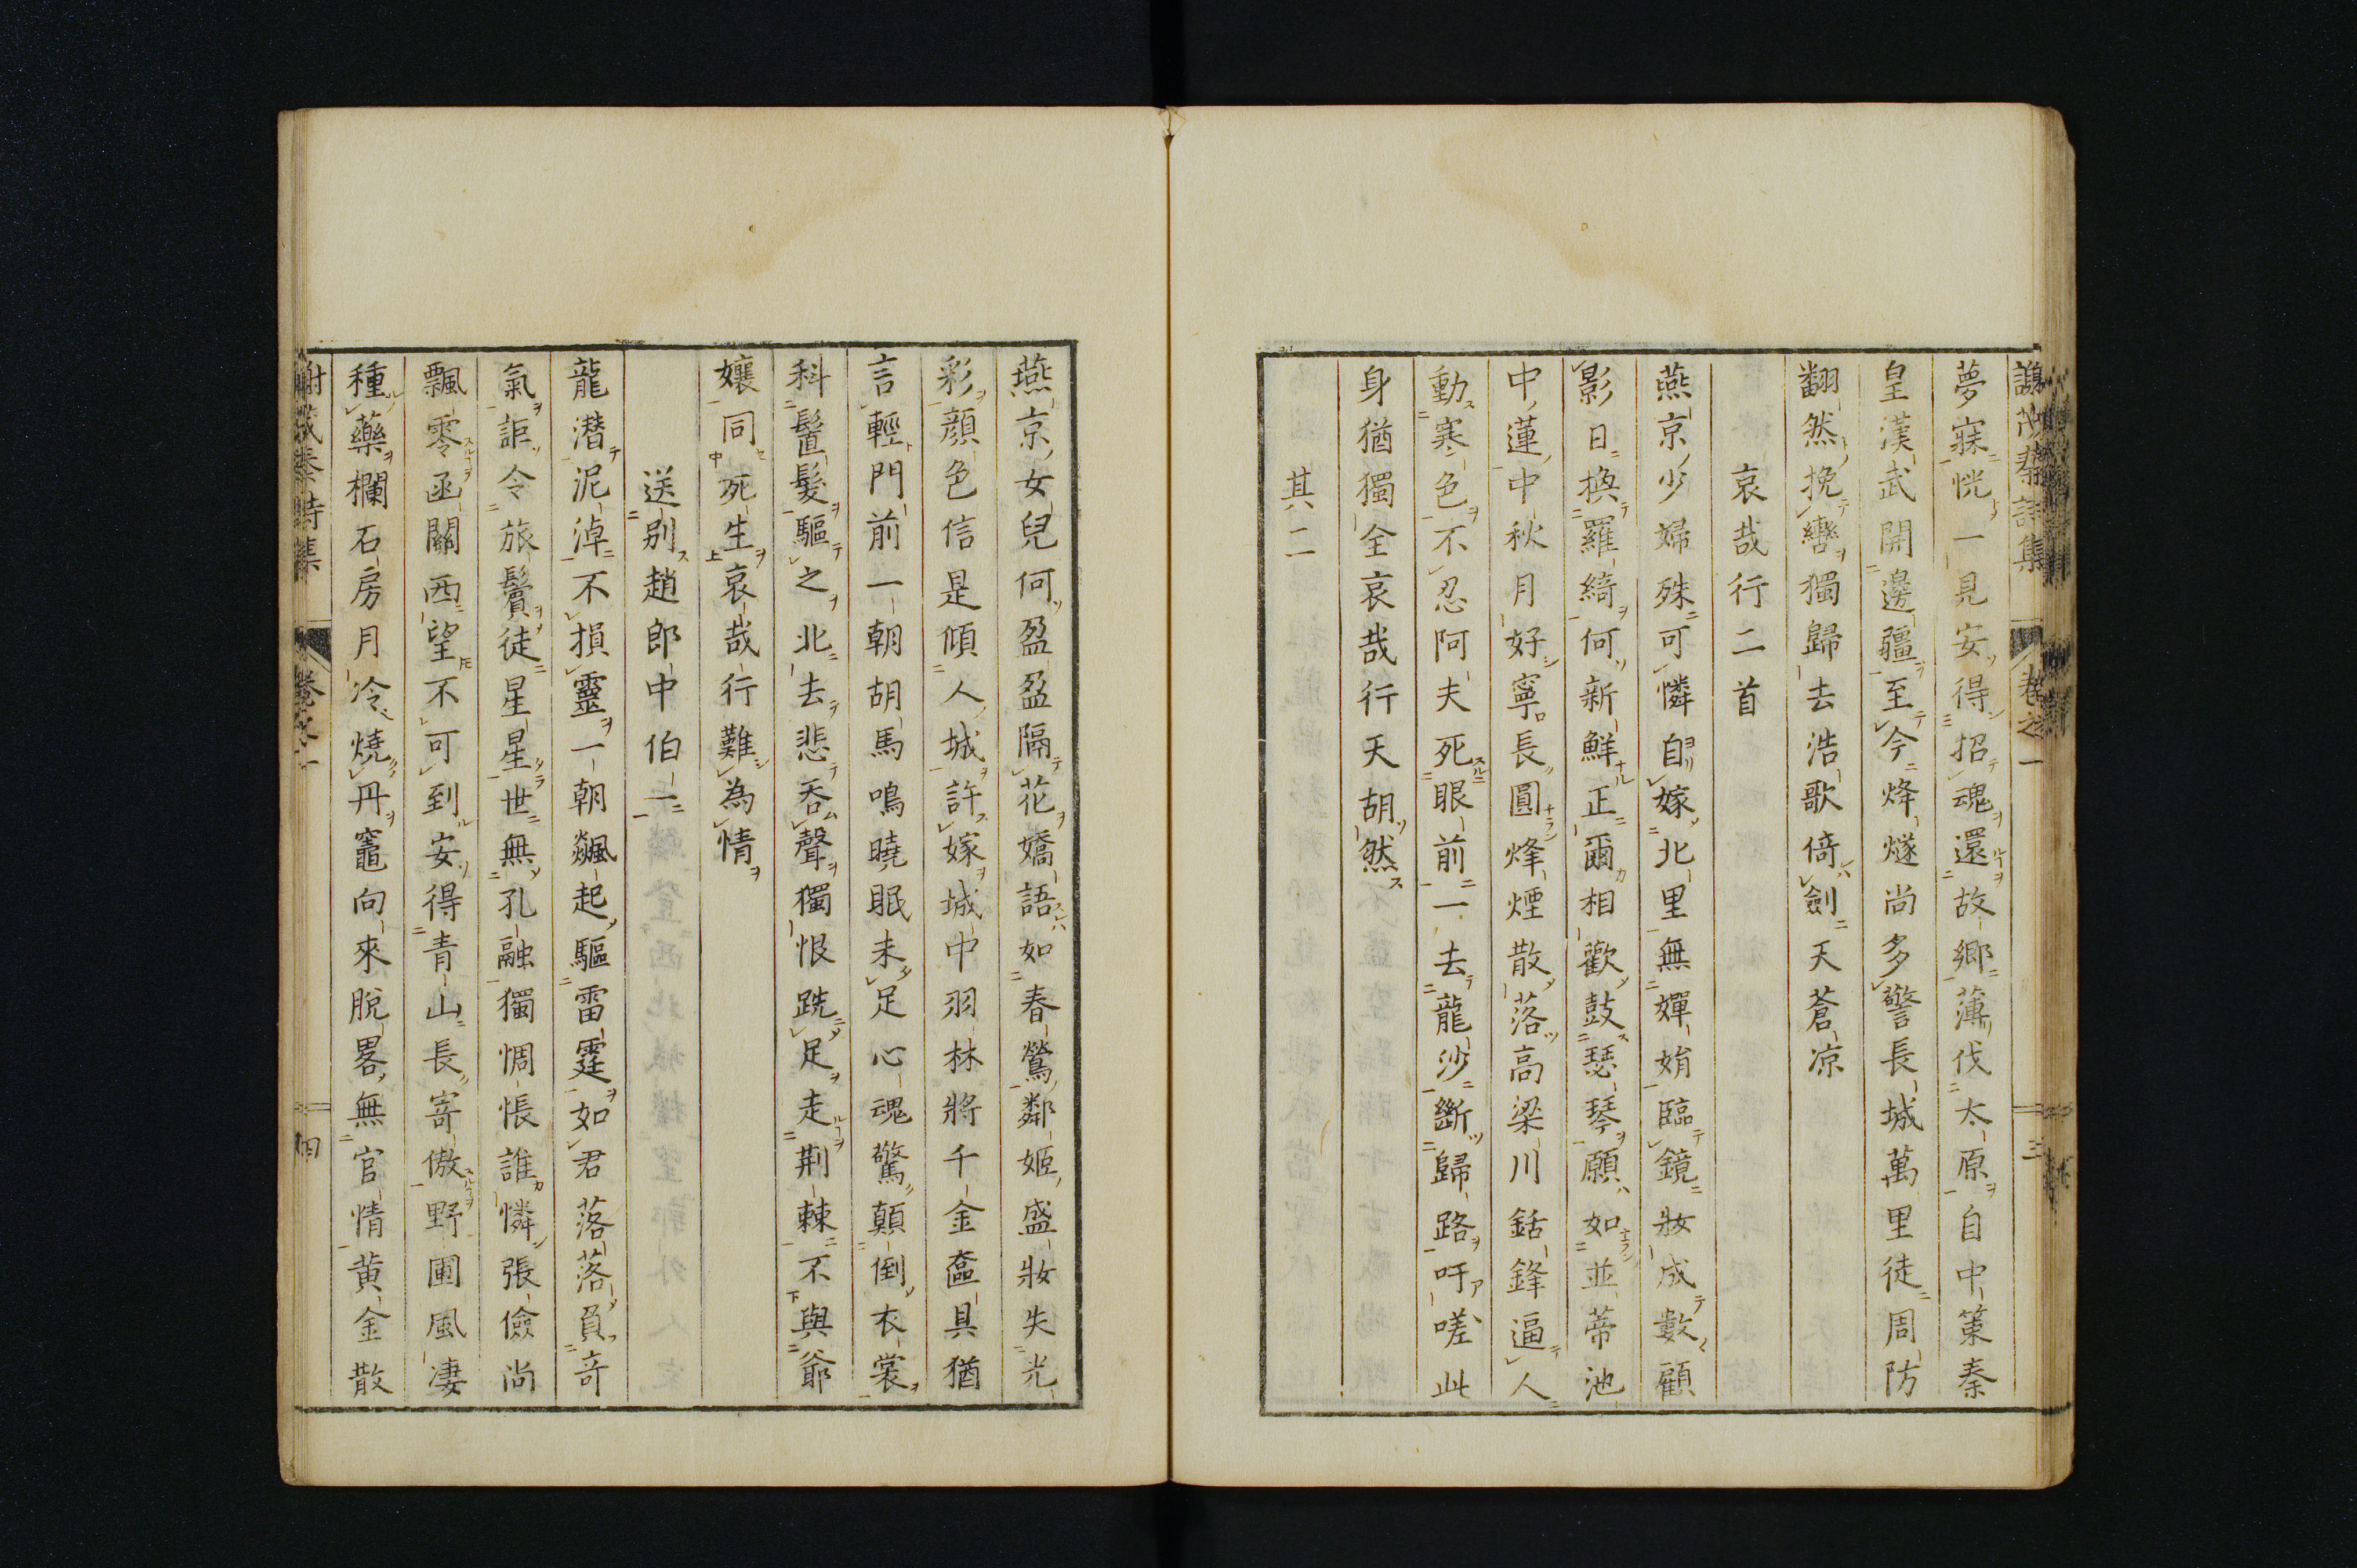 謝茂秦詩集 卷之一 三
夢寐恍一見安得招魂還故鄉薄伐太原自中策秦
皇漢武開邊疆至今烽燧尚多警長城萬里徒周防
翻然挽轡獨歸去浩歌倚劍天蒼凉
哀哉行二首
燕京少婦殊可憐自嫁北里無嬋娟臨鏡妝成數顧
影日換羅綺何新鮮正爾相歡鼓瑟琴願如並蒂池
中蓮中秋月好寧長圓烽煙散落高梁川銛鋒逼人
動寒色不忍阿夫死眼前一去龍沙斷歸路吁嗟此
身猶獨全哀哉行天胡然
其二
燕京女兒何盈盈隔花嬌語如春鶯鄰姬盛妝失光
彩顏色信是傾人城許嫁城中羽林將千金奩具猶
言輕門前一朝胡馬鳴曉眠未足心魂驚顛倒衣裳
科髻髮驅之北去悲吞聲獨恨跣足走荆棘不與爺
孃同死生哀哉行難為情
送別趙郎中伯一
龍潛泥淖不損靈一朝飈起驅雷霆如君落落負奇
氣詎令旅鬢徒星星世無孔融獨惆悵誰憐張儉尚
飄零函關西望不可到安得青山長寄傲野圃風凄
種藥欄石房月冷燒丹竈向來脫畧無官情黃金散
謝茂秦詩集 卷之一 四